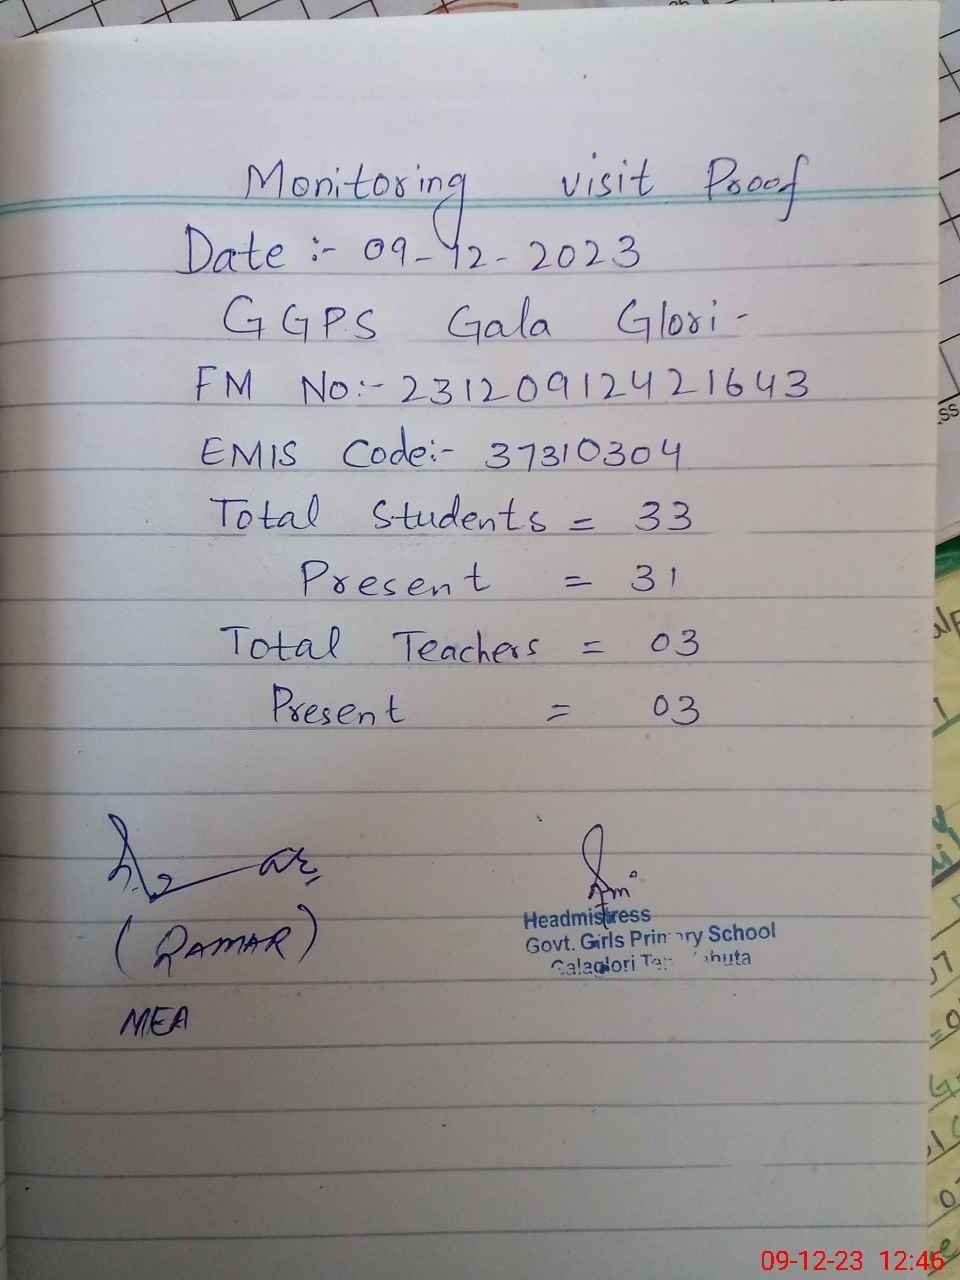 Monitoring visit Proof
Date :- 09-12-2023
GGPS Gala Glori-
FM No:- 23120912421643
EMIS Code:- 37310304
Total Students = 33
Present = 31
Total Teachers = 03
Present = 03
(QAMAR)
MEA
Headmistress
Govt. Girls Primary School
Galaglori
09-12-23 12:46